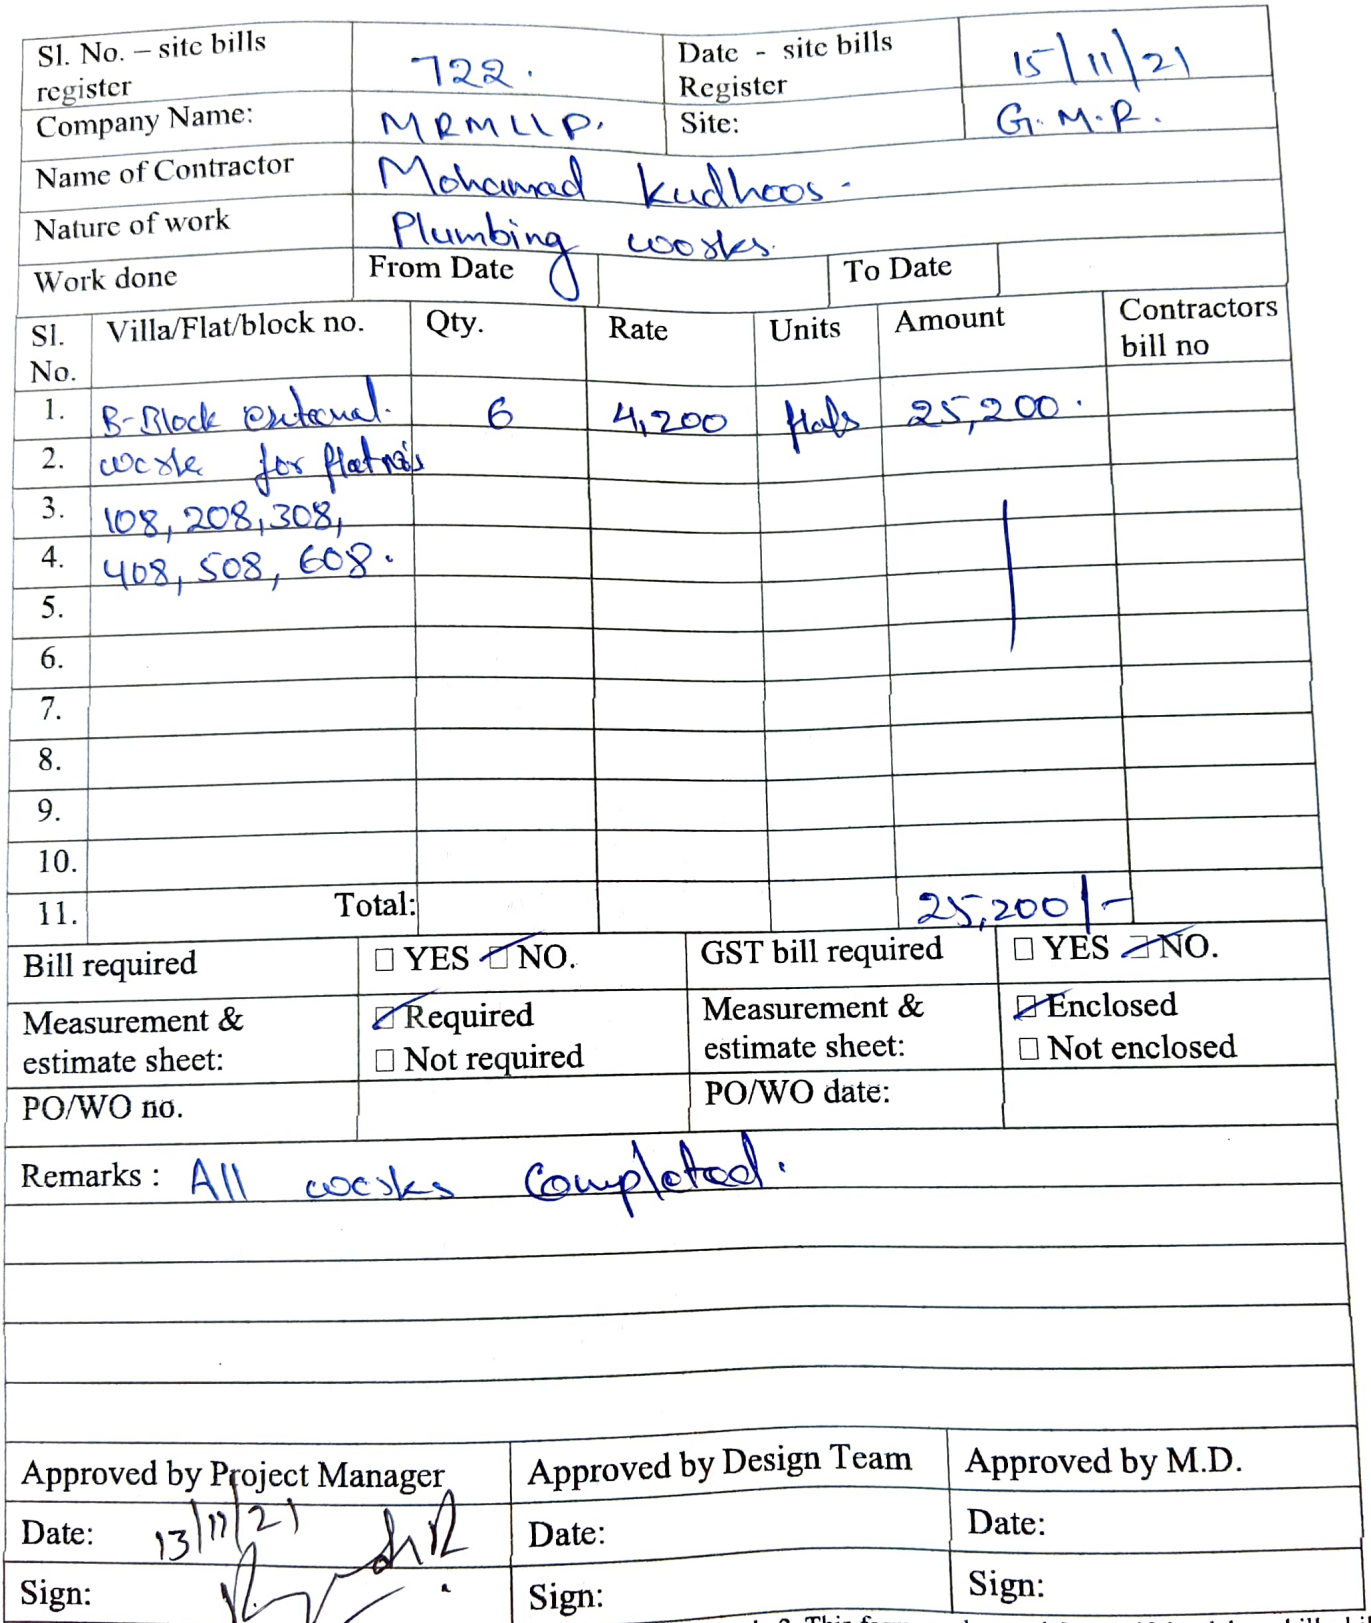 Sl. No. – site bills register 722. Date - site bills Register 15/11/21
Company Name: MRMLLP. Site: G.M.R.
Name of Contractor Mohamad Kudhoos.
Nature of work Plumbing works.
Work done From Date To Date
Sl. No. Villa/Flat/block no. Qty. Rate Units Amount Contractors bill no
1. B-Block external. 6 4,200 flats 25,200.
2. work for flat no's
3. 108, 208, 308,
4. 408, 508, 608.
5.
6.
7.
8.
9.
10.
11. Total: 25,200/-
Bill required □ YES ☑ NO. GST bill required □ YES ☑ NO.
Measurement & estimate sheet: ☑ Required □ Not required Measurement & estimate sheet: ☑ Enclosed □ Not enclosed
PO/WO no. PO/WO date:
Remarks : All works Completed.
Approved by Project Manager Approved by Design Team Approved by M.D.
Date: 13/11/21 Date: Date:
Sign: Sign: Sign: